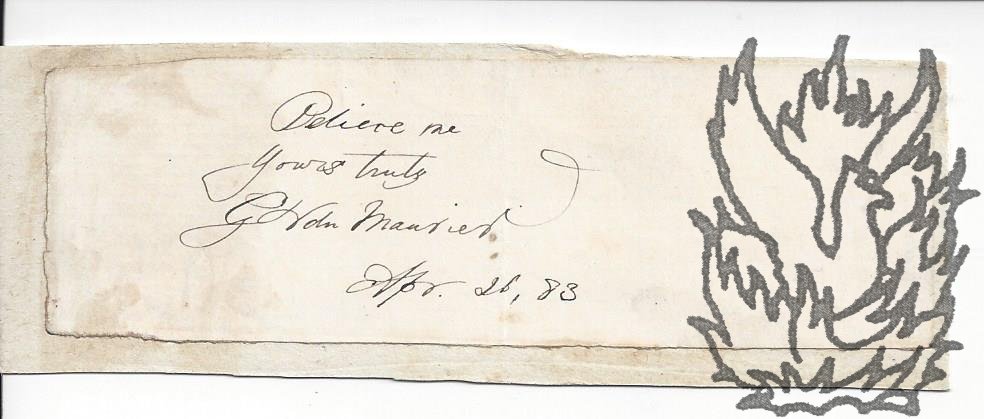 Believe me
Yours truly
G du Maurier
Apr. 26, 83